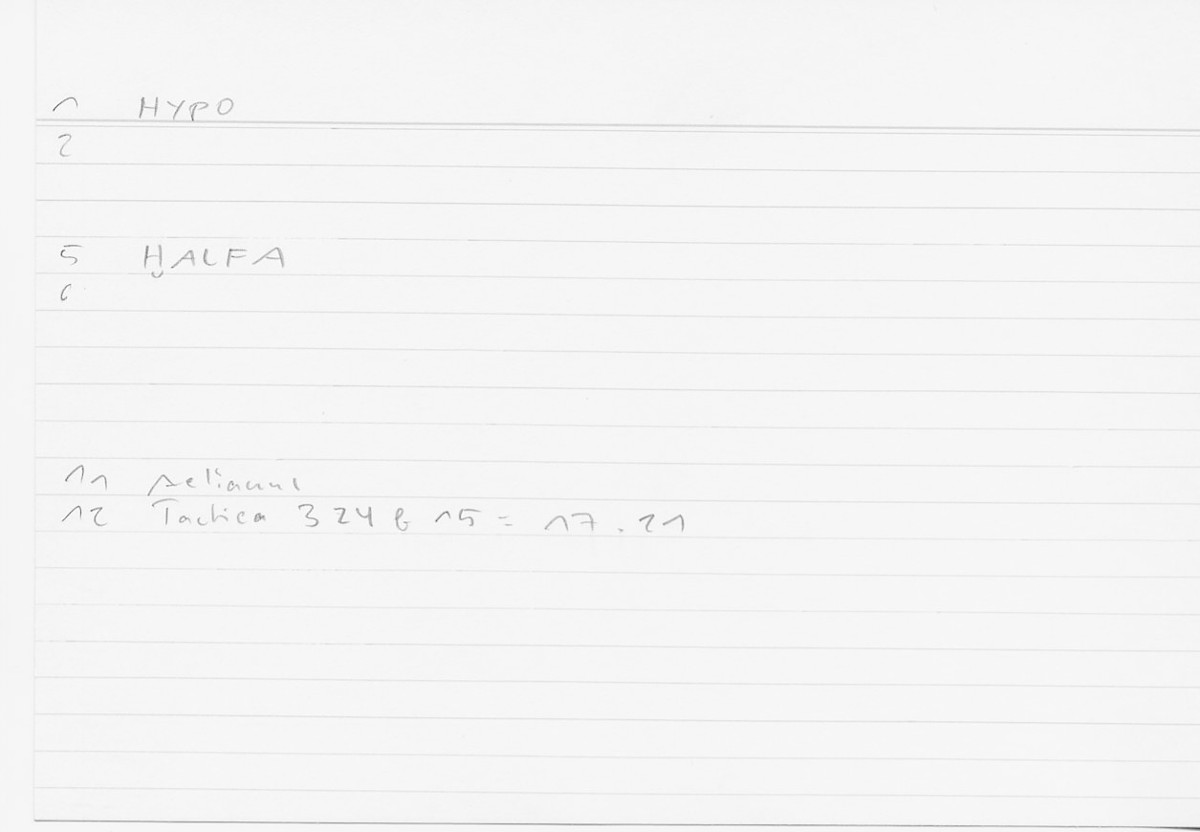 1 HYPO
2
5 ḪALFA
6
11 Aelianus
12 Tactica 324 b 15 = 17.21